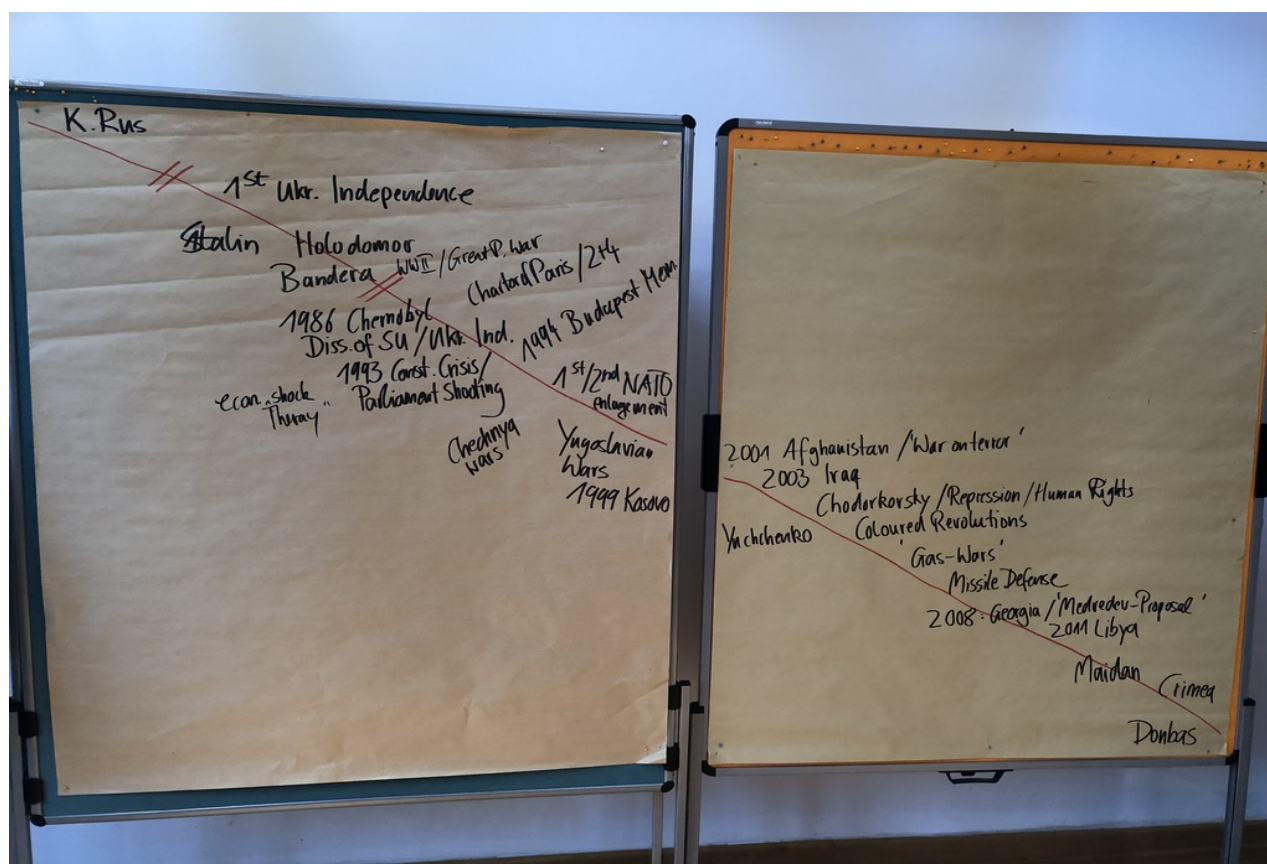 K. Rus
1st Ukr. Independence
Stalin Holodomor
Bandera WWII/Great P. War
Chart of Paris/2+4
1986 Chernobyl
Diss. of SU/Ukr. Ind.
1994 Budapest Mem.
1993 Const. Crisis/
Parliament Shooting
econ. "shock
Theray"
1st/2nd NATO
enlagement
Chechnya
wars
Yugoslavian
Wars
1999 Kosovo
2001 Afghanistan/'War on terror'
2003 Iraq
Chodorkorsky/Repression/Human Rights
Coloured Revolutions
Yuchchenko
'Gas-Wars'
Missile Defense
2008: Georgia/'Medvedev-Proposal'
2011 Libya
Maidan
Crimea
Donbas